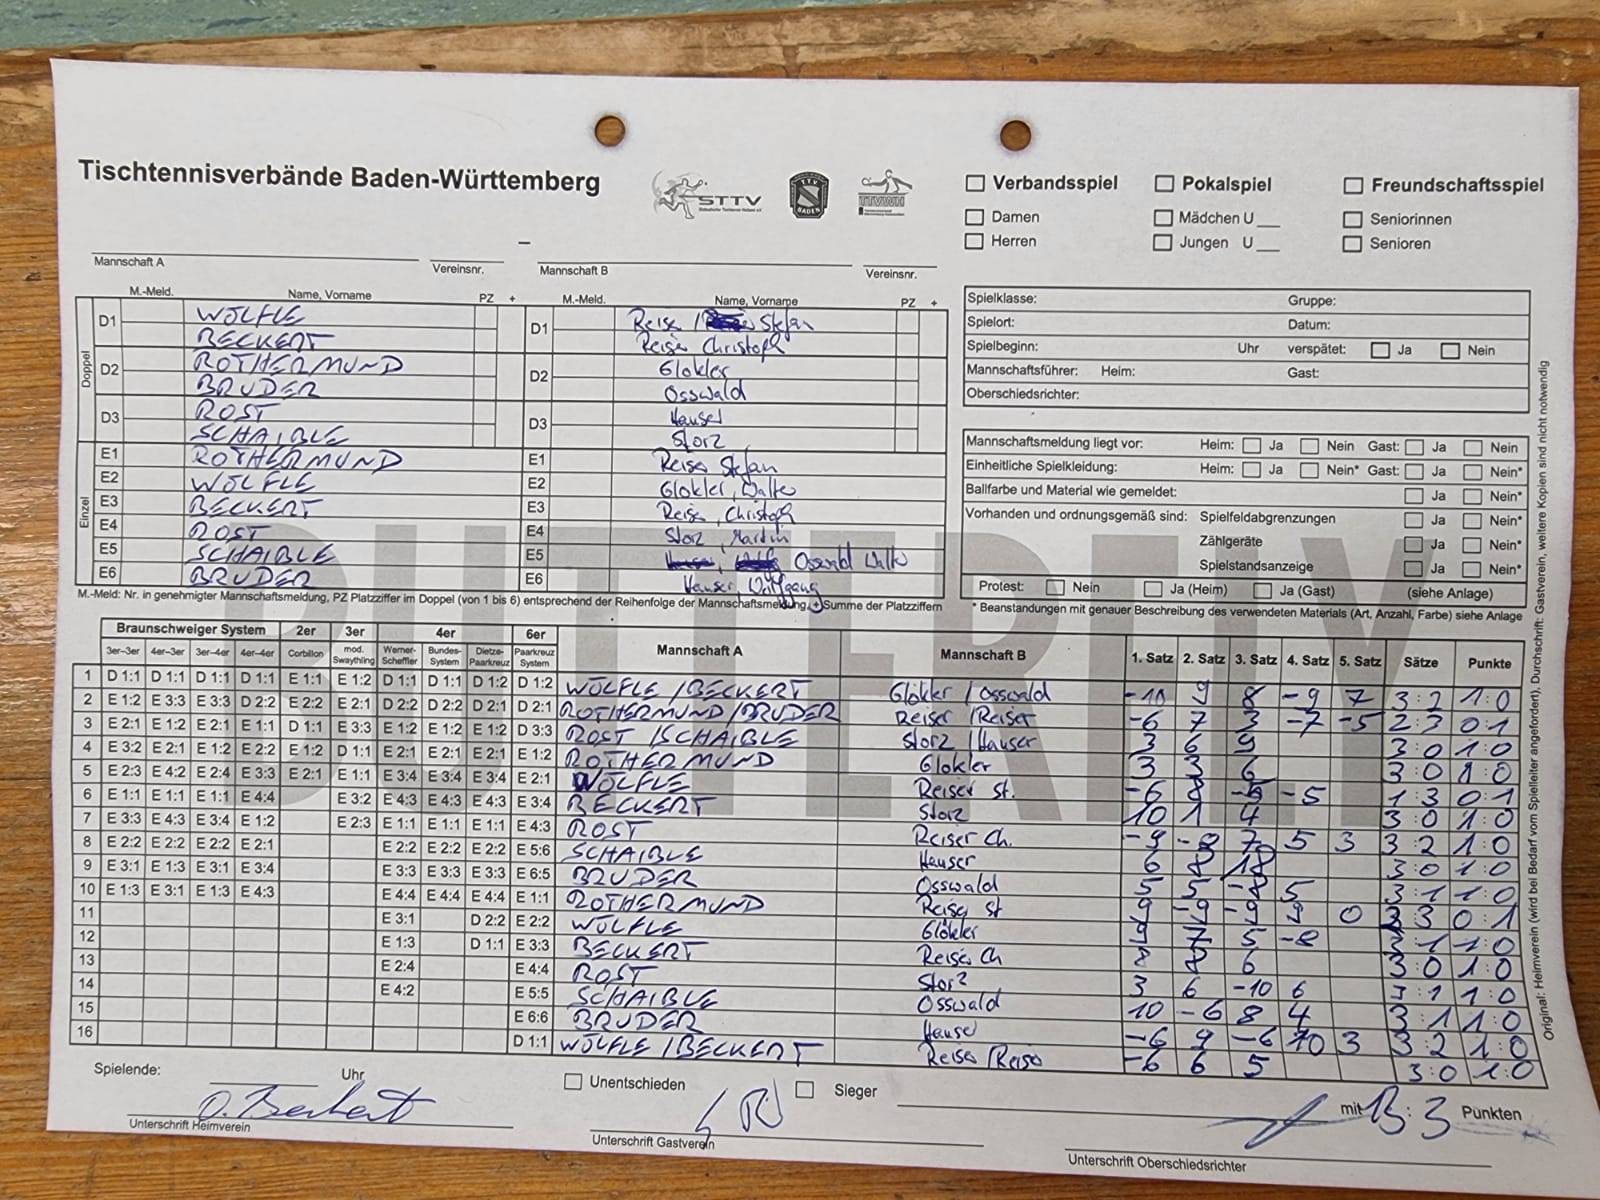 Tischtennisverbände Baden-Württemberg
STTV
TTV BADEN
TTVWH
Verbandsspiel Pokalspiel Freundschaftsspiel
Damen Mädchen U__ Seniorinnen
Herren Jungen U__ Senioren
–
Mannschaft A Vereinsnr. Mannschaft B Vereinsnr.
M.-Meld. Name, Vorname PZ + M.-Meld. Name, Vorname PZ +
Doppel
D1 WÖLFLE D1 Reiser / Stefan
BECKERT Reiser Christoph
D2 ROTHERMUND D2 Glökler
BRUDER Osswald
D3 ROST D3 Hauser
SCHAIBLE Storz
Einzel
E1 ROTHERMUND E1 Reiser Stefan
E2 WÖLFLE E2 Glökler, Walter
E3 BECKERT E3 Reiser, Christoph
E4 ROST E4 Storz, Martin
E5 SCHAIBLE E5 Osswald Walter
E6 BRUDER E6 Hauser, Wolfgang
M.-Meld: Nr. in genehmigter Mannschaftsmeldung, PZ Platzziffer im Doppel (von 1 bis 6) entsprechend der Reihenfolge der Mannschaftsmeldung, + Summe der Platzziffern
Spielklasse: Gruppe:
Spielort: Datum:
Spielbeginn: Uhr verspätet: Ja Nein
Mannschaftsführer: Heim: Gast:
Oberschiedsrichter:
Mannschaftsmeldung liegt vor: Heim: Ja Nein Gast: Ja Nein
Einheitliche Spielkleidung: Heim: Ja Nein* Gast: Ja Nein*
Ballfarbe und Material wie gemeldet: Ja Nein*
Vorhanden und ordnungsgemäß sind: Spielfeldabgrenzungen Ja Nein*
Zählgeräte Ja Nein*
Spielstandsanzeige Ja Nein*
Protest: Nein Ja (Heim) Ja (Gast) (siehe Anlage)
* Beanstandungen mit genauer Beschreibung des verwendeten Materials (Art, Anzahl, Farbe) siehe Anlage
BUTTERFLY
Braunschweiger System 2er 3er 4er 6er Mannschaft A Mannschaft B 1. Satz 2. Satz 3. Satz 4. Satz 5. Satz Sätze Punkte
3er–3er 4er–3er 3er–4er 4er–4er Corbillon mod. Swaythling Werner-Scheffler Bundes-System Dietze-Paarkreuz Paarkreuz System
1 D 1:1 D 1:1 D 1:1 D 1:1 E 1:1 E 1:2 D 1:1 D 1:1 D 1:2 D 1:2 WÖLFLE / BECKERT Glökler / Osswald -10 9 8 -9 7 3:2 1:0
2 E 1:2 E 3:3 E 3:3 D 2:2 E 2:2 E 2:1 D 2:2 D 2:2 D 2:1 D 2:1 ROTHERMUND / BRUDER Reiser / Reiser -6 7 3 -7 -5 2:3 0:1
3 E 2:1 E 1:2 E 2:1 E 1:1 D 1:1 E 3:3 E 1:2 E 1:2 E 1:2 D 3:3 ROST / SCHAIBLE Storz / Hauser 3 6 9 3:0 1:0
4 E 3:2 E 2:1 E 1:2 E 2:2 E 1:2 D 1:1 E 2:1 E 2:1 E 2:1 E 1:2 ROTHERMUND Glökler 3 3 6 3:0 1:0
5 E 2:3 E 4:2 E 2:4 E 3:3 E 2:1 E 1:1 E 3:4 E 3:4 E 3:4 E 2:1 WÖLFLE Reiser St. -6 8 -5 1:3 0:1
6 E 1:1 E 1:1 E 1:1 E 4:4 E 3:2 E 4:3 E 4:3 E 4:3 E 3:4 BECKERT Storz 10 1 4 3:0 1:0
7 E 3:3 E 4:3 E 3:4 E 1:2 E 2:3 E 1:1 E 1:1 E 1:1 E 4:3 ROST Reiser Ch. -9 7 5 3 3:2 1:0
8 E 2:2 E 2:2 E 2:2 E 2:1 E 2:2 E 2:2 E 2:2 E 5:6 SCHAIBLE Hauser 6 8 18 3:0 1:0
9 E 3:1 E 1:3 E 3:1 E 3:4 E 3:3 E 3:3 E 3:3 E 6:5 BRUDER Osswald 5 5 -8 5 3:1 1:0
10 E 1:3 E 3:1 E 1:3 E 4:3 E 4:4 E 4:4 E 4:4 E 1:1 ROTHERMUND Reiser St 9 -9 -9 9 0 2:3 0:1
11 E 3:1 D 2:2 E 2:2 WÖLFLE Glökler 9 7 5 -8 3:1 1:0
12 E 1:3 D 1:1 E 3:3 BECKERT Reiser Ch 8 8 6 3:0 1:0
13 E 2:4 E 4:4 ROST Storz 3 6 -10 6 3:1 1:0
14 E 4:2 E 5:5 SCHAIBLE Osswald 10 -6 8 4 3:1 1:0
15 E 6:6 BRUDER Hauser -6 9 -6 10 3 3:2 1:0
16 D 1:1 WÖLFLE / BECKERT Reiser / Reiser -6 6 5 3:0 1:0
Spielende: Uhr Unentschieden Sieger mit 13:3 Punkten
Unterschrift Heimverein Unterschrift Gastverein Unterschrift Oberschiedsrichter
Original: Heimverein (wird bei Bedarf vom Spielleiter angefordert), Durchschrift: Gastverein, weitere Kopien sind nicht notwendig